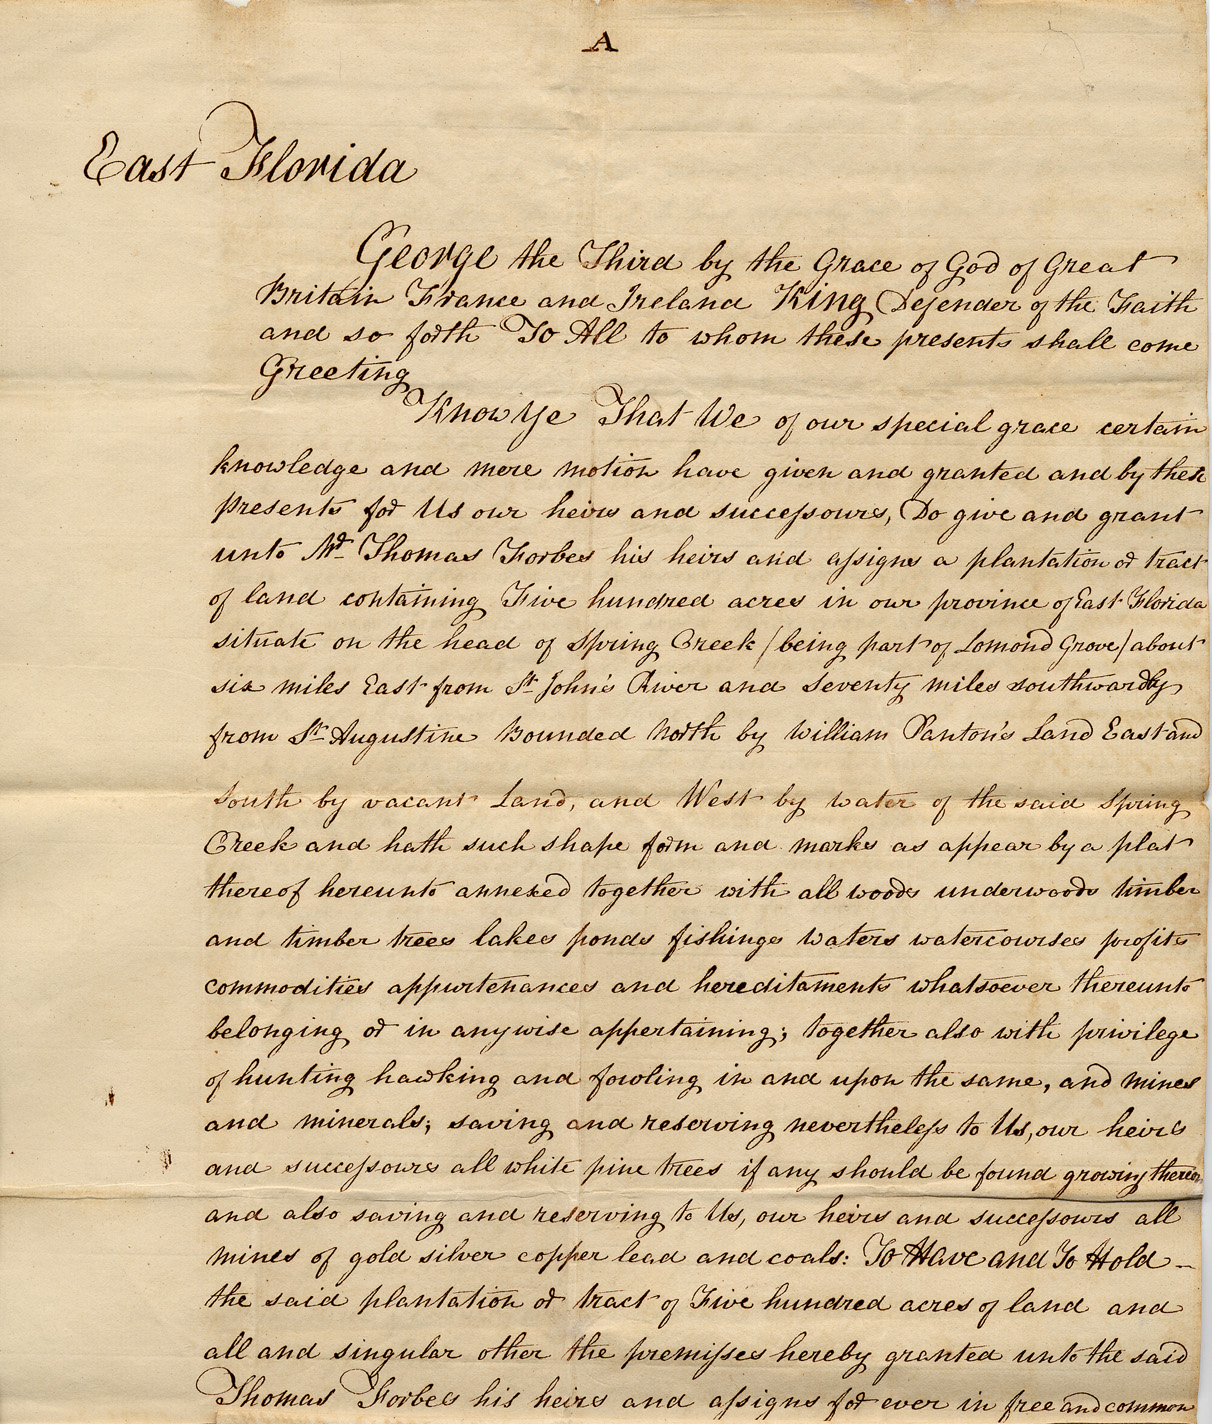 A
East Florida
George the Third by the Grace of God of Great
Britain France and Ireland King Defender of the Faith
and so forth To All to whom these presents shall come
Greeting
Know Ye That We of our special grace certain
knowledge and mere motion have given and granted and by these
presents for Us our heirs and successours, Do give and grant
unto Mr. Thomas Forbes his heirs and assigns a plantation or tract
of land containing Five hundred acres in our province of East Florida
situate on the head of Spring Creek /being part of Lomond Grove/ about
six miles East from St. John's River and Seventy miles southwardly
from St. Augustine Bounded North by William Panton's Land East and
South by vacant Land, and West by water of the said Spring
Creek and hath such shape form and marks as appear by a plat
thereof hereunto annexed together with all woods underwoods timber
and timber trees lakes ponds fishings waters watercourses profits
commodities appurtenances and hereditaments whatsoever thereunto
belonging or in anywise appertaining; together also with privilege
of hunting hawking and fowling in and upon the same, and mines
and minerals; saving and reserving nevertheless to Us, our heirs
and successours all white pine trees if any should be found growing thereon
and also saving and reserving to Us, our heirs and successours all
mines of gold silver copper lead and coals: To Have and To Hold
the said plantation or tract of Five hundred acres of land and
all and singular other the premisses hereby granted unto the said
Thomas Forbes his heirs and assigns for ever in free and common